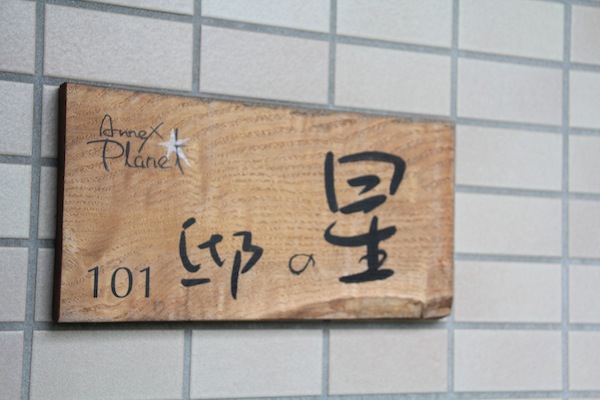 Annex
Planet
星の邸
101